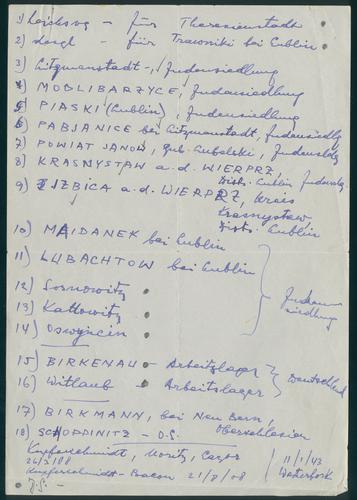 1) - für Theresienstadt
2) - für Trawniki bei Lublin
3) Litzmanstadt -, Judensiedlung
4) MODLIBARZYCE, Judensiedlung
5) PIASKI (Lublin), Judensiedlung
6) PABJANICE bei Litzmanstadt, Judensiedlg
7) POWIAT JANOW, gub. Lubelski, Judensldg
8) KRASNYSTAW a.d. WIERPRZ, Distr. Lublin Judensdg
9) IZBICA a.d. WIERPRZ, Kreis
Krasnystaw
Distr. Lublin
10) MAIDANEK bei Lublin
11) LUBACHTOW bei Lublin
12) Sosnowitz
13) Kattowitz
14) Oswyncin
Juden-
siedlung
15) BIRKENAU - Arbeitslager
16) Witlaub - Arbeitslager
Deutschland
17) BIRKMANN, bei Neu Berun,
Oberschlesien
18) SCHOPPINITZ - O.S.
Kupferschmidt, Moritz,
11/1/43
26/3/88
Kupferschmidt - 21/8/08
Westerbork